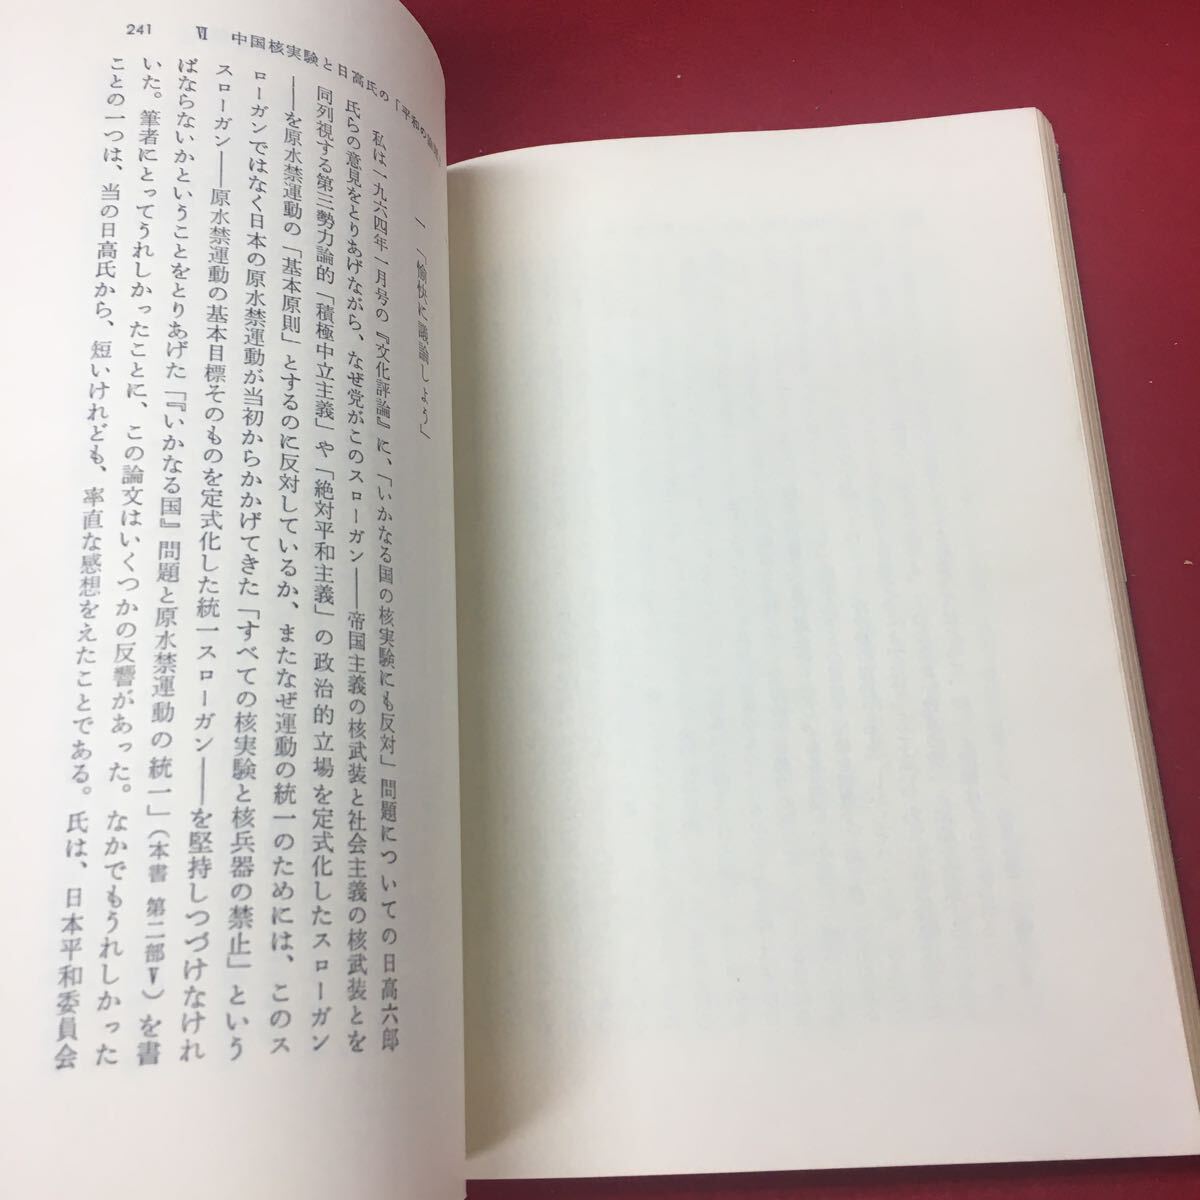 241
Ⅵ 中国核実験と日高氏の「平和の論理」
一 「愉快に議論しよう」
私は一九六四年一月号の『文化評論』に、「いかなる国の核実験にも反対」問題についての日高六郎
氏らの意見をとりあげながら、なぜ党がこのスローガン――帝国主義の核武装と社会主義の核武装とを
同列視する第三勢力論的「積極中立主義」や「絶対平和主義」の政治的立場を定式化したスローガン
――を原水禁運動の「基本原則」とするのに反対しているか、またなぜ運動の統一のためには、このス
ローガンではなく日本の原水禁運動が当初からかかげてきた「すべての核実験と核兵器の禁止」という
スローガン――原水禁運動の基本目標そのものを定式化した統一スローガン――を堅持しつづけなけれ
ばならないかということをとりあげた「『いかなる国』問題と原水禁運動の統一」(本書 第二部Ⅴ)を書
いた。筆者にとってうれしかったことに、この論文はいくつかの反響があった。なかでもうれしかった
ことの一つは、当の日高氏から、短いけれども、率直な感想をえたことである。氏は、日本平和委員会